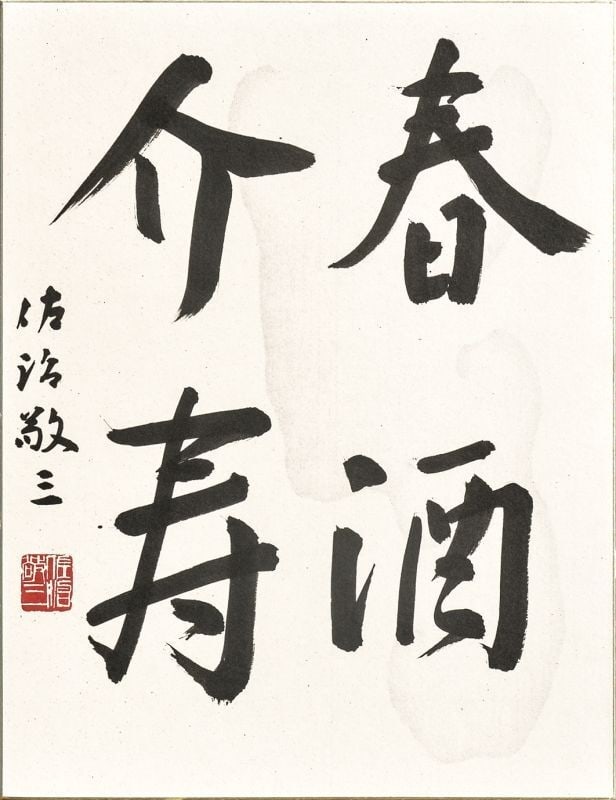 春酒
介寿
佐治敬三
佐治
敬三